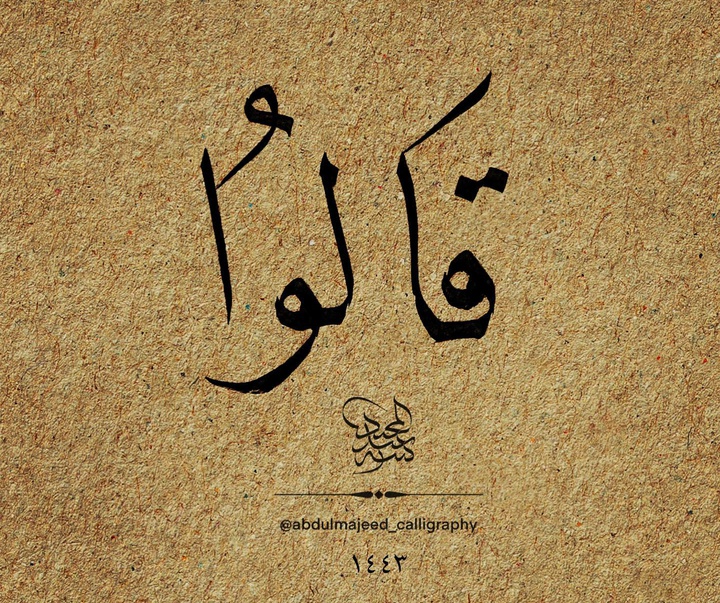 قَالُوا
كتبه عبد المجيد
@abdulmajeed_calligraphy
١٤٤٣